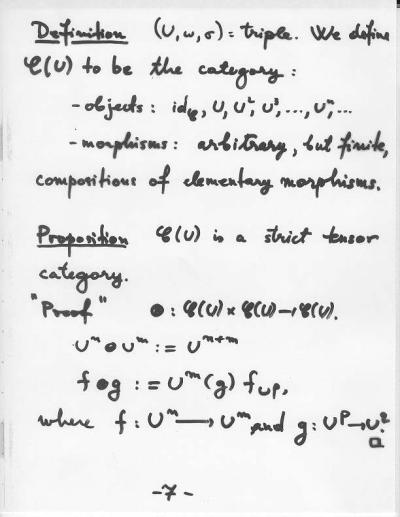 Definition (U, ω, σ) = triple. We define
𝒞(U) to be the category:
- objects: id𝒞, U, U², U³, ..., Uⁿ, ...
- morphisms: arbitrary, but finite,
compositions of elementary morphisms.
Proposition 𝒞(U) is a strict tensor
category.
"Proof" ⊗: 𝒞(U) × 𝒞(U) → 𝒞(U).
Uⁿ ⊗ Uᵐ := Uⁿ⁺ᵐ
f ⊗ g := Uᵐ(g) f_Uᵖ,
where f: Uⁿ → Uᵐ and g: Uᵖ → U².
□
-7-